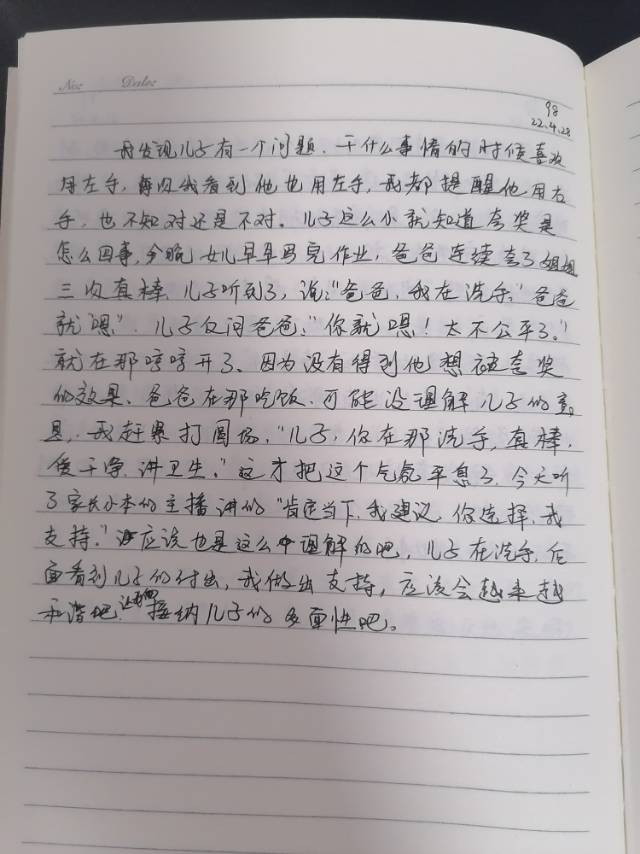 No: Date:
98
22.4.28
我发现儿子有一个问题.干什么事情的时候喜欢
用左手,每次我看到他也用左手,我都提醒他用右
手,也不知对还是不对。儿子这么小就知道夸奖是
怎么回事,今晚女儿早早写完作业,爸爸连续夸了姐姐
三次真棒,儿子听到了,说:"爸爸,我在洗手."爸爸
就嗯.".儿子反问爸爸:"你就嗯!太不公平了."
就在那哼哼开了、因为没有得到他想被夸奖
的效果、爸爸在那吃饭.可能没理解儿子的意
思.我赶累打圆场."儿子,你在那洗手,真棒.
爱干净,讲卫生."这才把这个气氛平息了,今天听
了家长小本的主播讲的"肯定当下,我建议,你选择,我
支持."应该也是这么理解的吧,儿子在洗手,后
面看到儿子的付出,我做出支持,应该会越来越
和谐吧.接纳儿子的多面性吧。